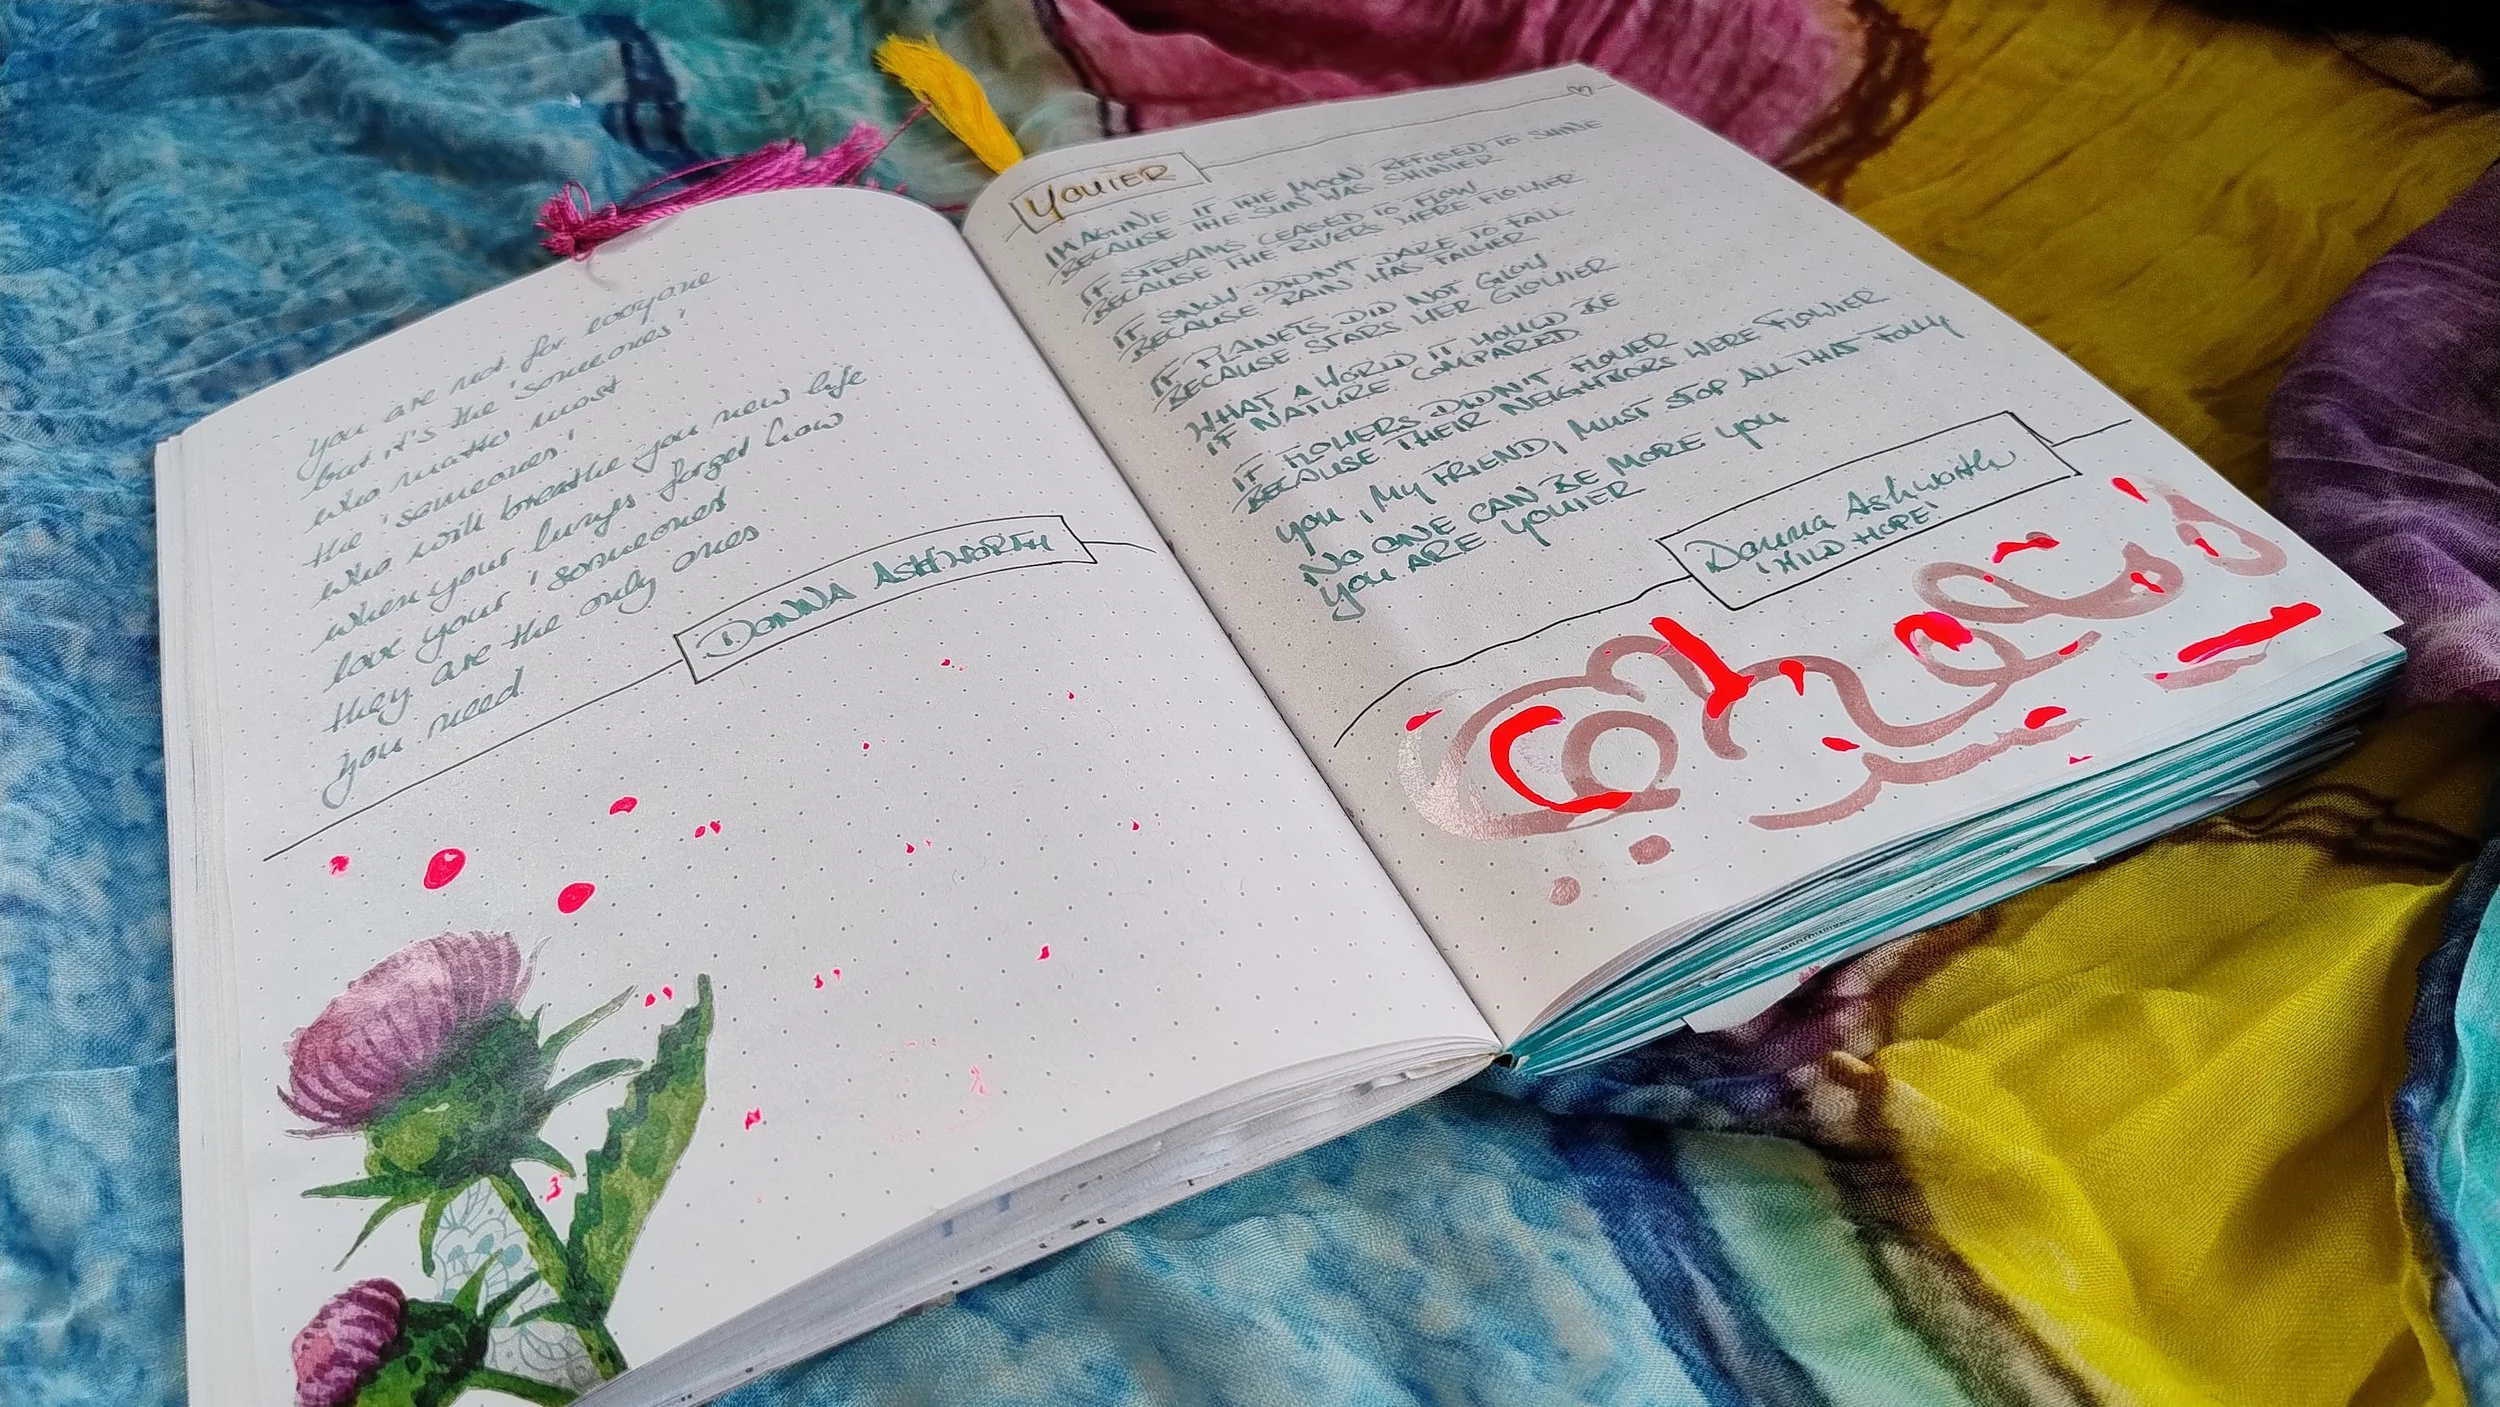 you are not for everyone
but it's the 'someones'
who matter most
the 'someones'
who will breathe you new life
when your lungs forget how
love your 'someones'
they are the only ones
you need
DONNA ASHWORTH
YOUIER
IMAGINE IF THE MOON REFUSED TO SHINE
BECAUSE THE SUN WAS SHINIER
IF STREAMS CEASED TO FLOW
BECAUSE THE RIVERS WERE FLOWIER
IF SNOW DIDN'T DARE TO FALL
BECAUSE RAIN WAS FALLIER
IF PLANETS DID NOT GLOW
BECAUSE STARS WER GLOWIER
WHAT A WORLD IT WOULD BE
IF NATURE COMPARED
IF FLOWERS DIDN'T FLOWER
BECAUSE THEIR NEIGHBORS WERE FLOWIER
YOU, MY FRIEND, MUST STOP ALL THAT FOLLY
NO ONE CAN BE MORE YOU
YOU ARE YOUIER
Donna Ashworth
'WILD HOPE'